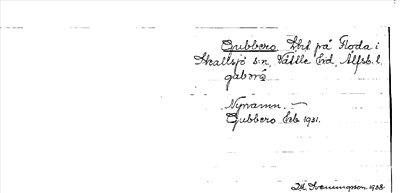 Gubbero Lht på Floda i
Skallsjö sn, Vättle hd, Älfsb. l.
gubrω
Nynamn. —
Gubbero feb 1931.
D.A. Svenungsson 1938